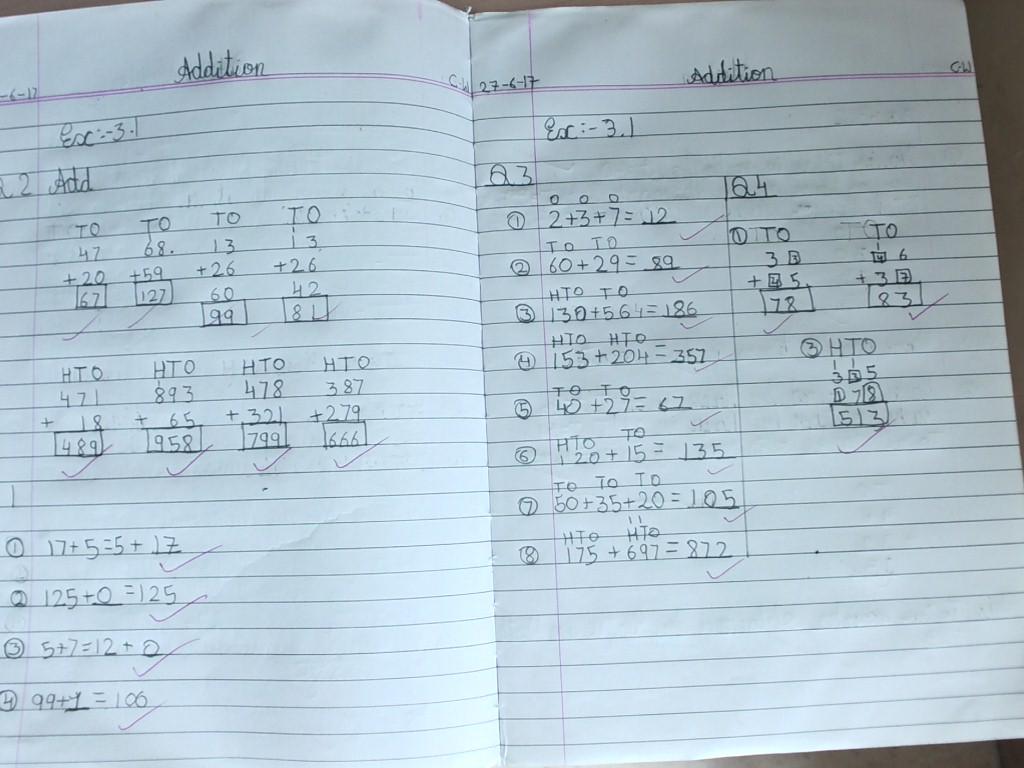 Addition
-6-17 C.W
Ex:-3.1
Q 2 Add
TO TO TO TO
47 68. 13 13
+20 +59 +26 +26
67 127 60 42
99 81
HTO HTO HTO HTO
471 893 478 387
+ 18 + 65 +321 +279
489 958 799 666
1
① 17+5=5+17
② 125+0=125
③ 5+7=12+0
④ 99+1=100
Addition
27-6-17 C.W
Ex:-3.1
Q3
O O O
① 2+3+7=12
TO TO
② 60+29=89
HTO TO
③ 130+564=186
HTO HTO
④ 153+204=357
TO TO
⑤ 40+27=67
HTO TO
⑥ 120+15=135
TO TO TO
⑦ 50+35+20=105
HTO HTO
⑧ 175+697=872
Q4
① TO TO
3 3 4 6
+ 4 5. + 3 7
78 83
③ HTO
3 3 5
1 7 8
513